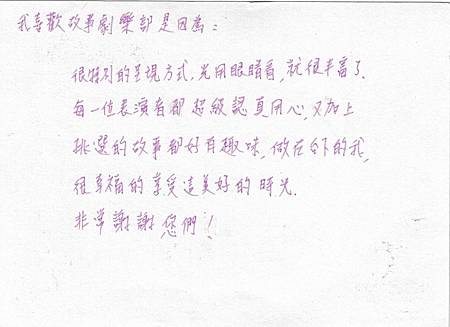 我喜歡故事劇樂部是因為：
很特別的呈現方式，光用眼睛看，就很丰富了．
每一位表演者都超級認真用心，又加上
挑選的故事都好有趣味，做在台下的我，
很幸福的享受這美好的時光．
非常謝謝您們！